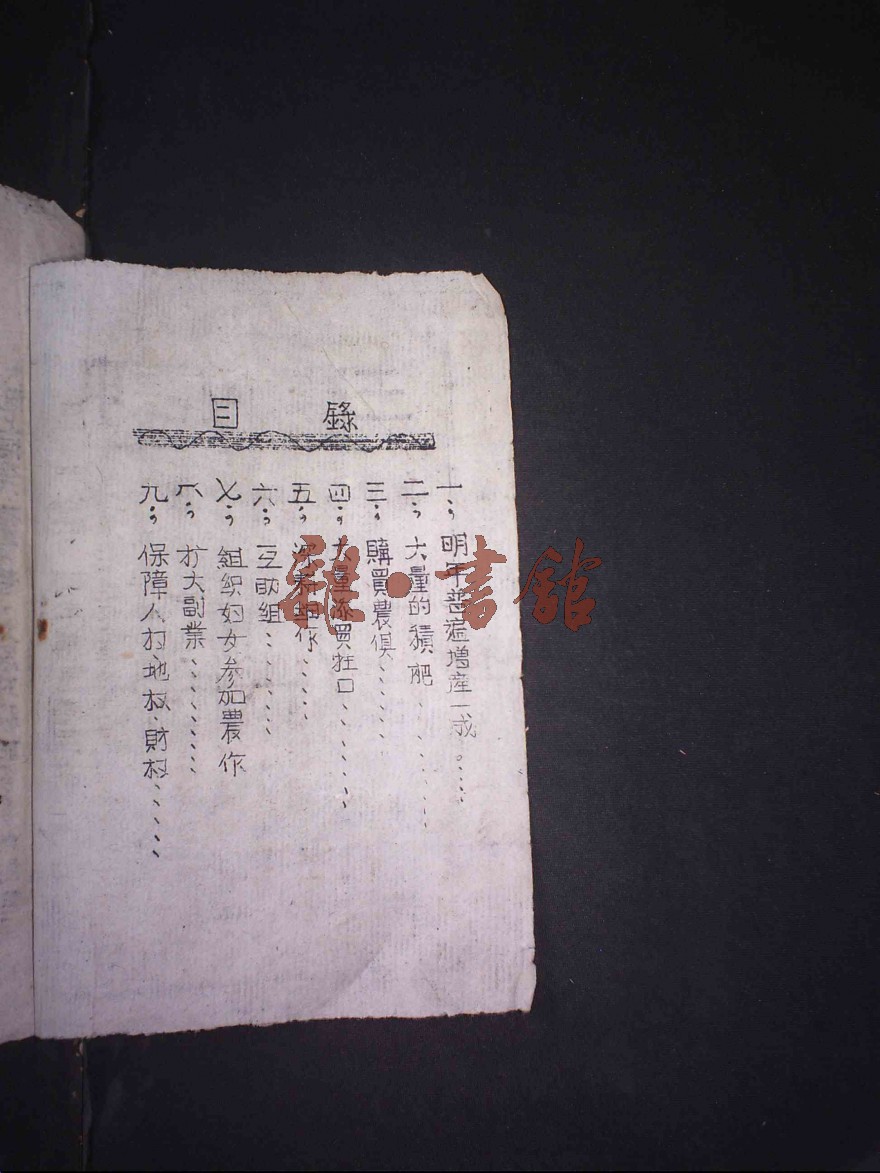 目錄
一、明年普遍增產一成
二、大量的積肥
三、購買農俱
四、大量添買牲口
五、深耕细作
六、互助组
七、組织妇女参加農作
八、扩大副業
九、保障人权、地权、財权
雅·書舘